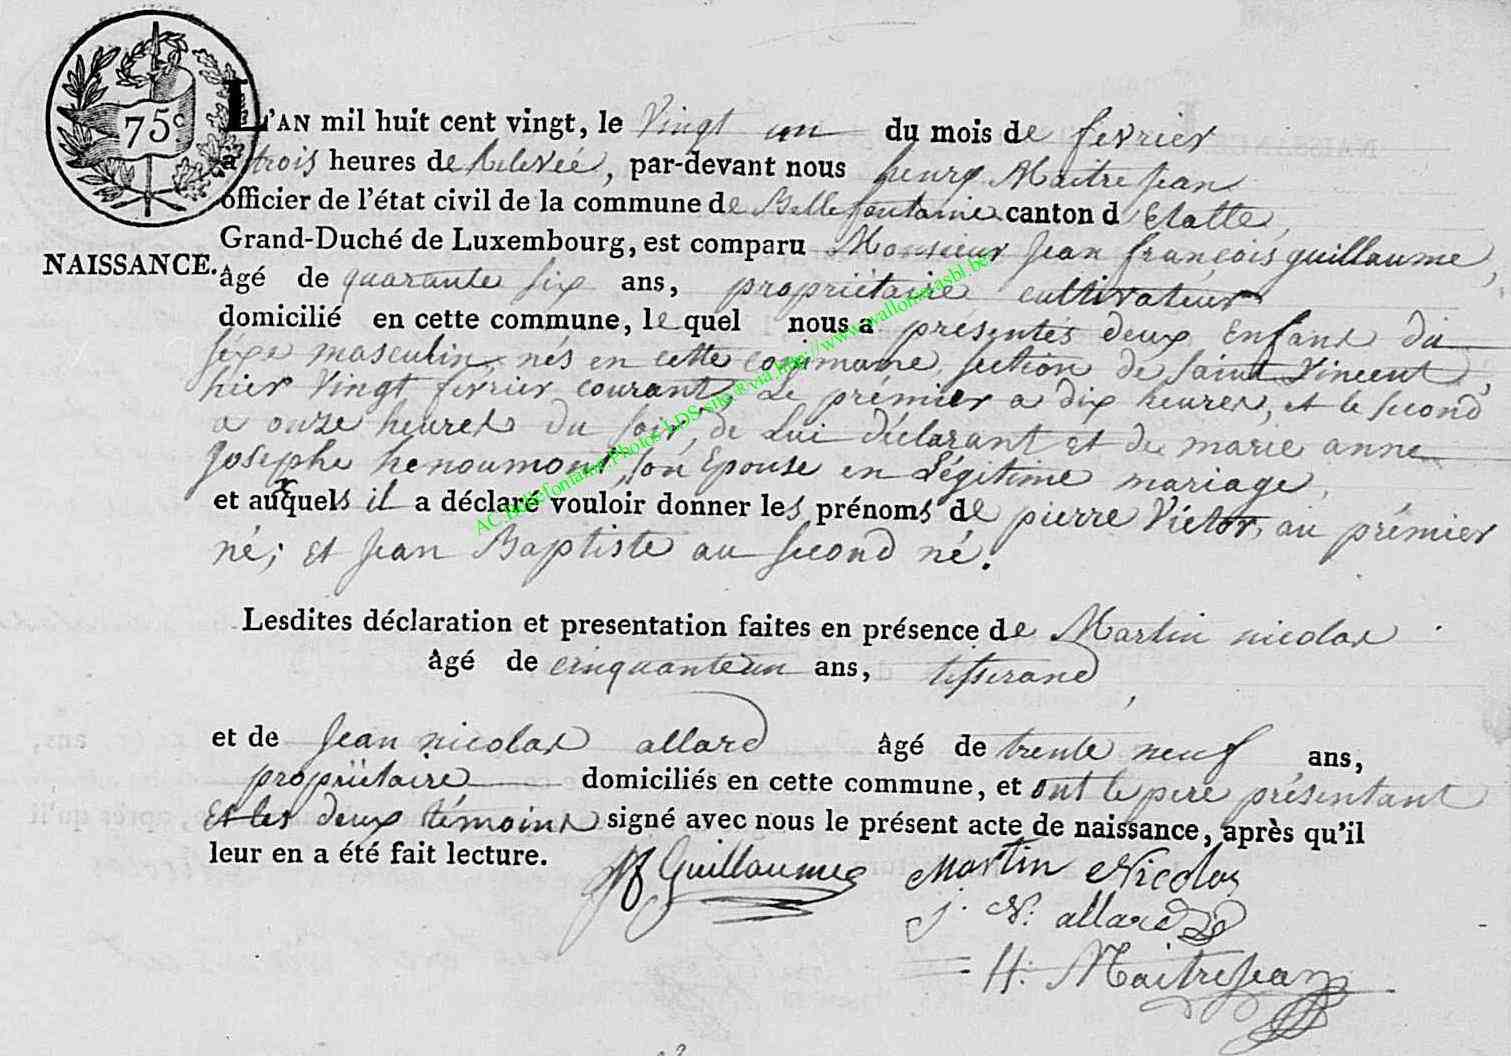 75c
L'AN mil huit cent vingt, le Vingt un du mois de fevrier
a trois heures de Relevée, par-devant nous henry Maitrejean
officier de l'état civil de la commune de Bellefontaine canton d'Etalle,
Grand-Duché de Luxembourg, est comparu Monsieur Jean françois guillaume,
NAISSANCE.
âgé de quarante six ans, propriétaire cultivateur
domicilié en cette commune, le quel nous a présentés deux Enfans du
séxe masculin, nés en cette commune, section de Saint Vincent,
hier Vingt fevrier courant, Le prémier a dix heures, et le second
a onze heures du soir, de Lui déclarant et de marie anne
Josephe henoumont, son Epouse en Légitime mariage,
et auxquels il a déclaré vouloir donner les prénoms de pierre Victor, au prémier
né; et Jean Baptiste au second né.
Lesdites déclaration et presentation faites en présence de Martin nicolas
âgé de cinquante un ans, tisserand,
et de Jean nicolas allard âgé de trente neuf ans,
propriétaire domiciliés en cette commune, et ont le pere présentant
Et les deux témoins signé avec nous le présent acte de naissance, après qu'il
leur en a été fait lecture.
JF Guillaume
Martin Nicolas
j. N. allard
H. Maitrejean